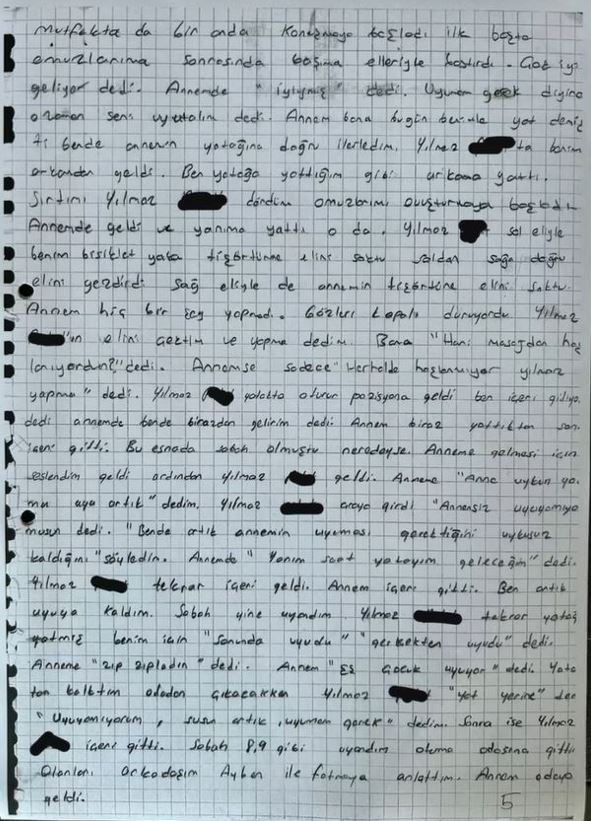 Mutfakta da bir anda konuşmaya başladı ilk başta
omuzlarıma sonrasında başıma elleriyle bastırdı. Çok iyi
geliyor dedi. Annemde "iyiymiş" dedi. Uyumam gerek diyince
o zaman seni uyutalım dedi. Annem bana bugün benimle yat demiş
ti bende annemin yatağına doğru ilerledim. Yılmaz ta benim
arkamdan geldi. Ben yatağa yattığım gibi arkama yattı.
Sırtımı Yılmaz döndüm omuzlarımı ovuşturmaya başladı.
Annemde geldi ve yanıma yattı o da. Yılmaz sol eliyle
benim bisiklet yaka tişörtüme elini soktu soldan sağa doğru
elini gezdirdi sağ eliyle de annemin tişörtüne elini soktu.
Annem hiç bir şey yapmadı. Gözleri kapalı duruyordu Yılmaz
ın elini çektim ve yapma dedim. Bana "Hani masajdan hoş
lanıyordun?" dedi. Annemse sadece "Herhalde hoşlanmıyor yılmaz
yapma" dedi. Yılmaz yatakta oturur pozisyona geldi ben içeri gidiyo
dedi annemde bende birazdan gelirim dedi. Annem biraz yattıktan son
içeri gitti. Bu esnada sabah olmuştu neredeyse. Anneme gelmesi için
seslendim geldi ardından Yılmaz geldi. Anneme "Anne uykun ya
mu uyu artık" dedim. Yılmaz araya girdi "Annensiz uyuyamıyo
musun dedi. "Bende artık annemin uyuması gerektiğini uykusuz
kaldığını" söyledim. Annemde "Yarım saat yatayım geleceğim" dedi.
Yılmaz tekrar içeri geldi. Annem içeri gitti. Ben artık
uyuya kaldım. Sabah yine uyandım Yılmaz tekrar yatağ
yatmış benim için "sonunda uyudu" "gerçekten uyudu" dedi.
Anneme "zıp zıpladın" dedi. Annem "çocuk uyuyor" dedi. Yata
tan kalktım odadan çıkacakken Yılmaz "yat yerine" dedi
"Uyuyamıyorum, susun artık, uyumam gerek" dedim. Sonra ise Yılmaz
içeri gitti. Sabah 8,9 gibi uyandım odama gittim
Olanları arkadaşım Ayben ile fatmaya anlattım. Annem odaya
geldi.
5